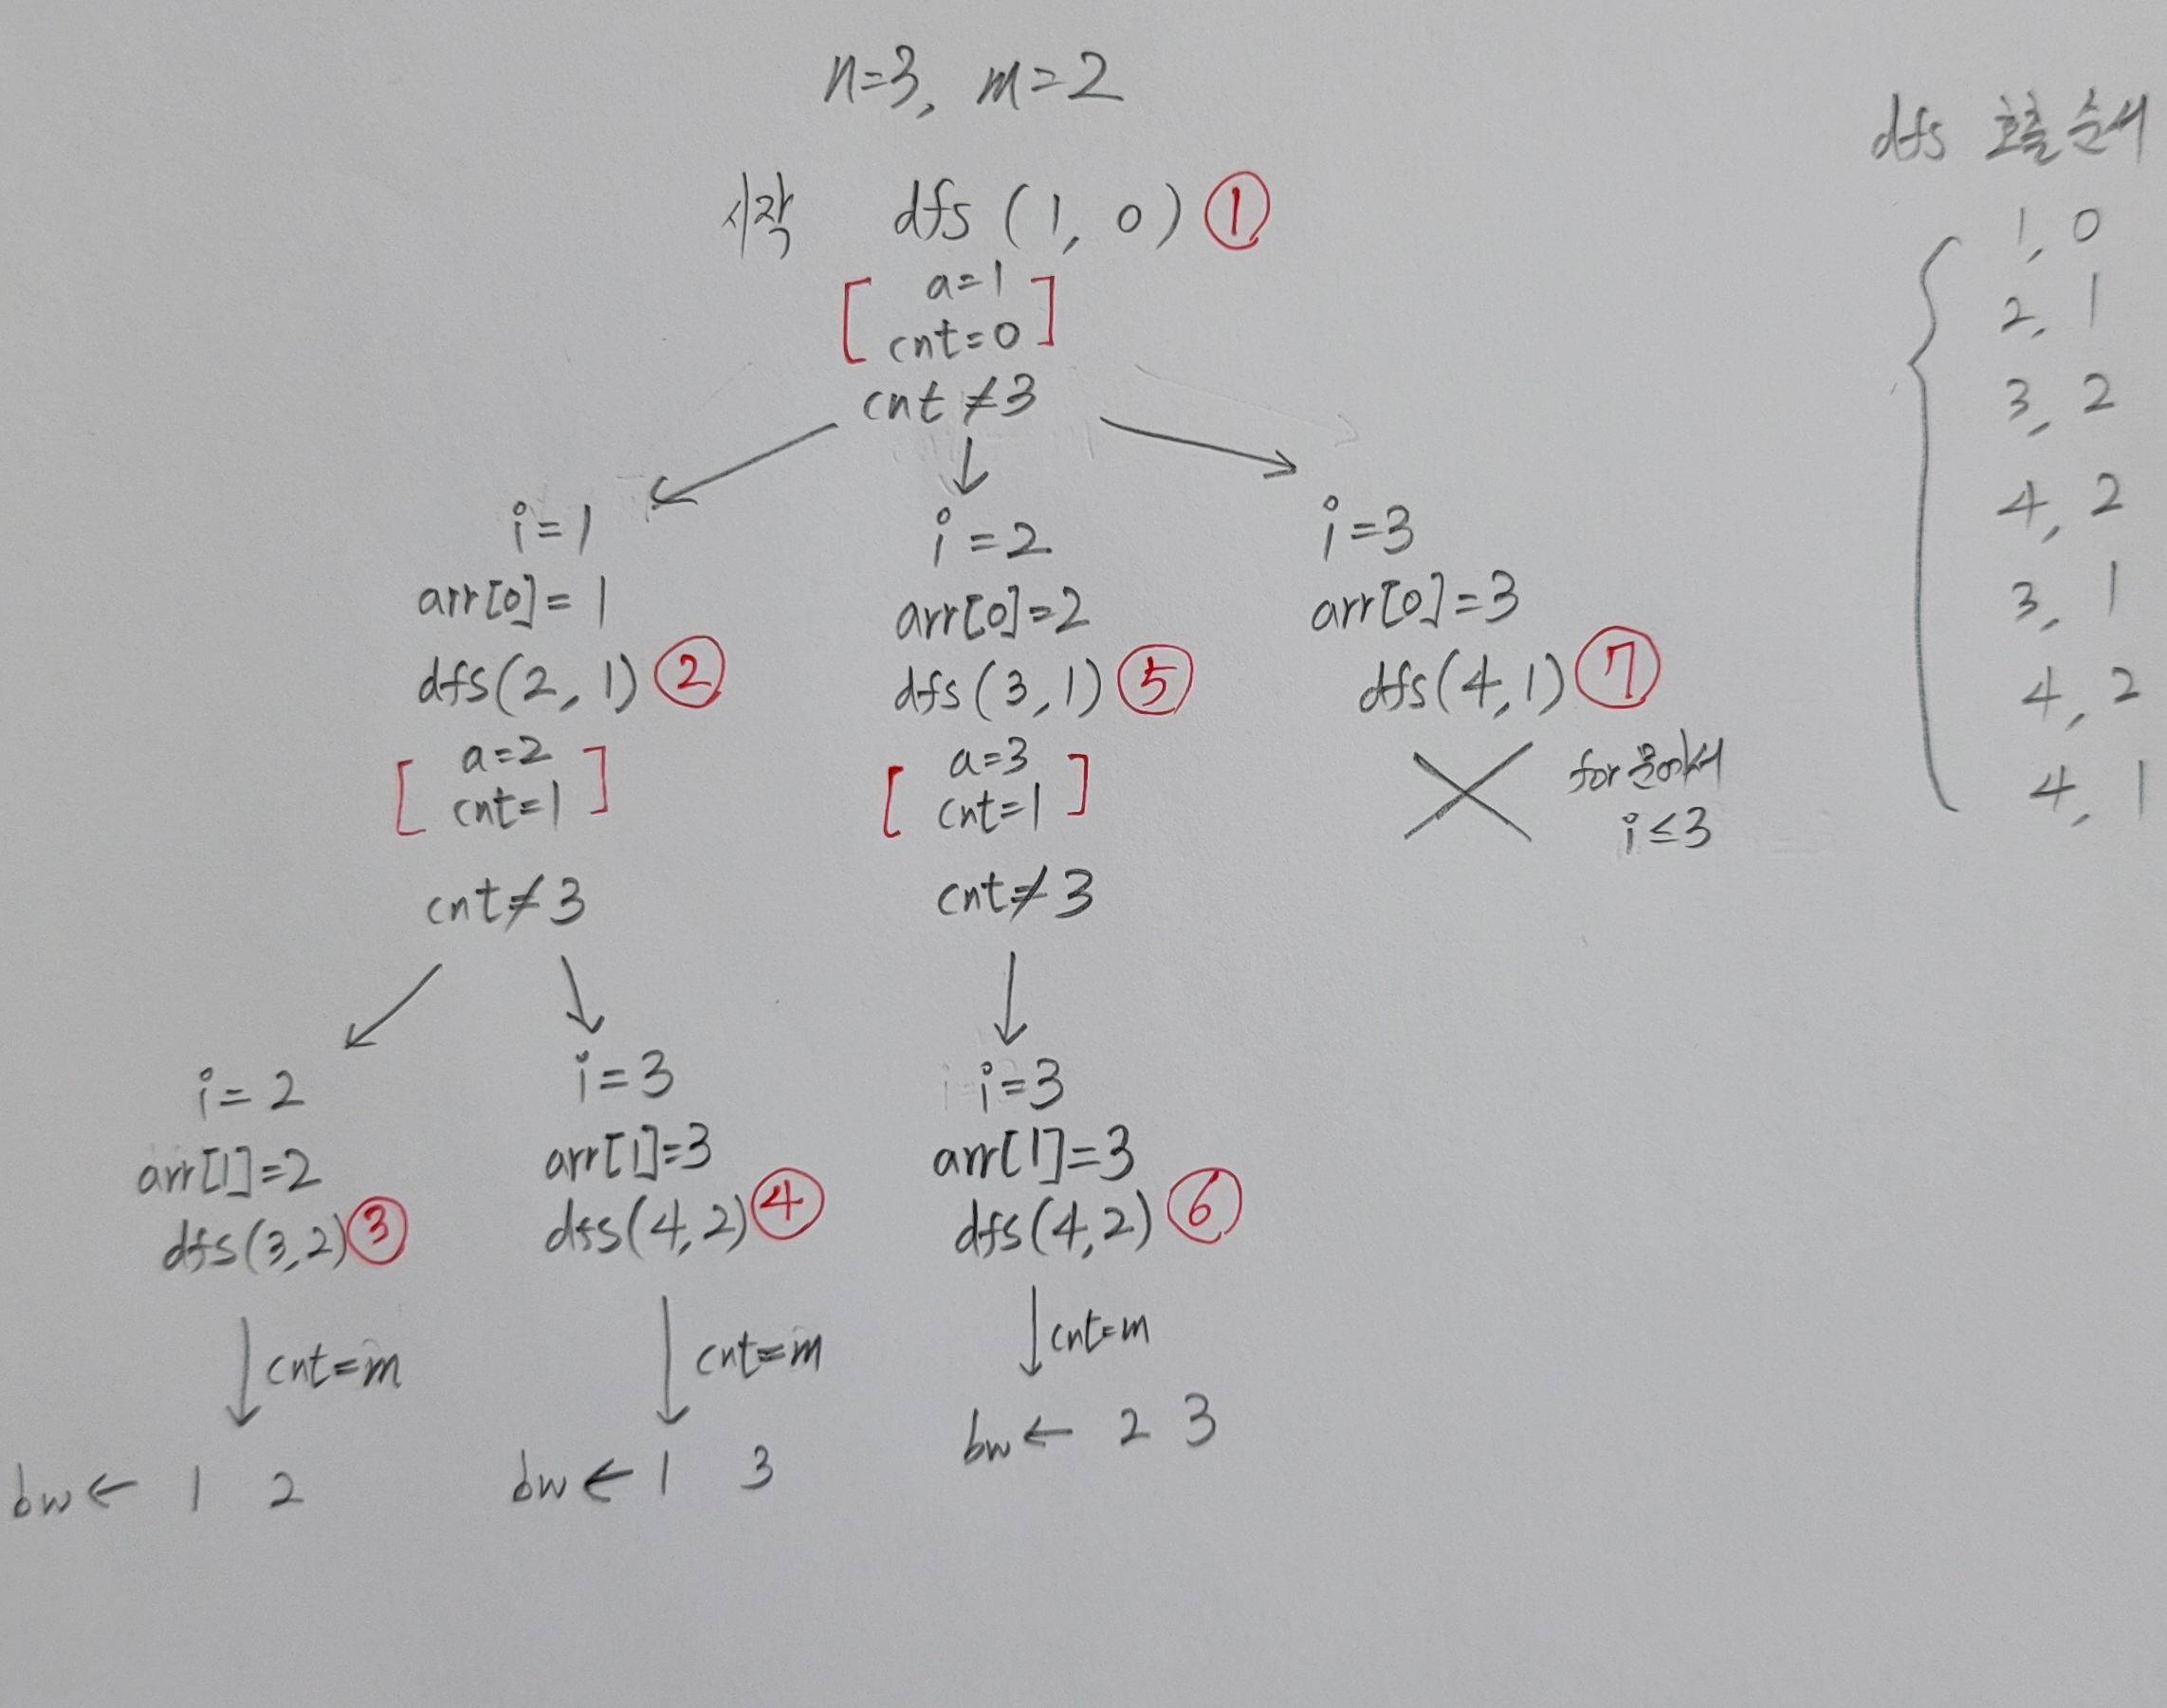 n=3, m=2
시작 dfs (1, 0) ①
a=1
cnt=0
cnt≠3
i=1
arr[0]=1
dfs(2, 1) ②
a=2
cnt=1
cnt≠3
i=2
arr[0]=2
dfs(3, 1) ⑤
a=3
cnt=1
cnt≠3
i=3
arr[0]=3
dfs(4, 1) ⑦
for문에서
i≤3
i=2
arr[1]=2
dfs(3,2) ③
cnt=m
bw← 1 2
i=3
arr[1]=3
dfs(4,2) ④
cnt=m
bw← 1 3
i=3
arr[1]=3
dfs(4,2) ⑥
cnt=m
bw← 2 3
dfs 호출순서
1, 0
2, 1
3, 2
4, 2
3, 1
4, 2
4, 1